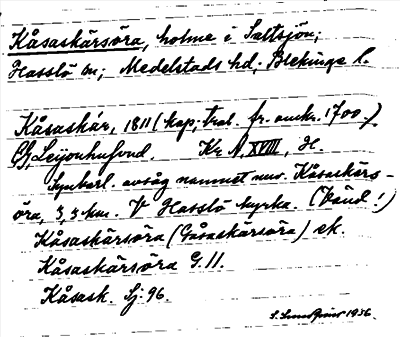 Kåsaskärsöra, holme i Saltsjön;
Hasslö sn; Medelstads hd; Blekinge l.
Kåsaskär, 1811 (kop; trol. fr. omkr. 1700.)
G. Leijonhufvud. Kr. A, XVIII, H.
Synbarl. avsåg namnet nuv. Kåsaskärs-
öra, 3,5 km. V Hasslö kyrka. (Obs!)
Kåsaskärsöra (Gåsaskärsöra) ek.
Kåsaskärsöra G. 11.
Kåsask. Sj. 96.
1936.